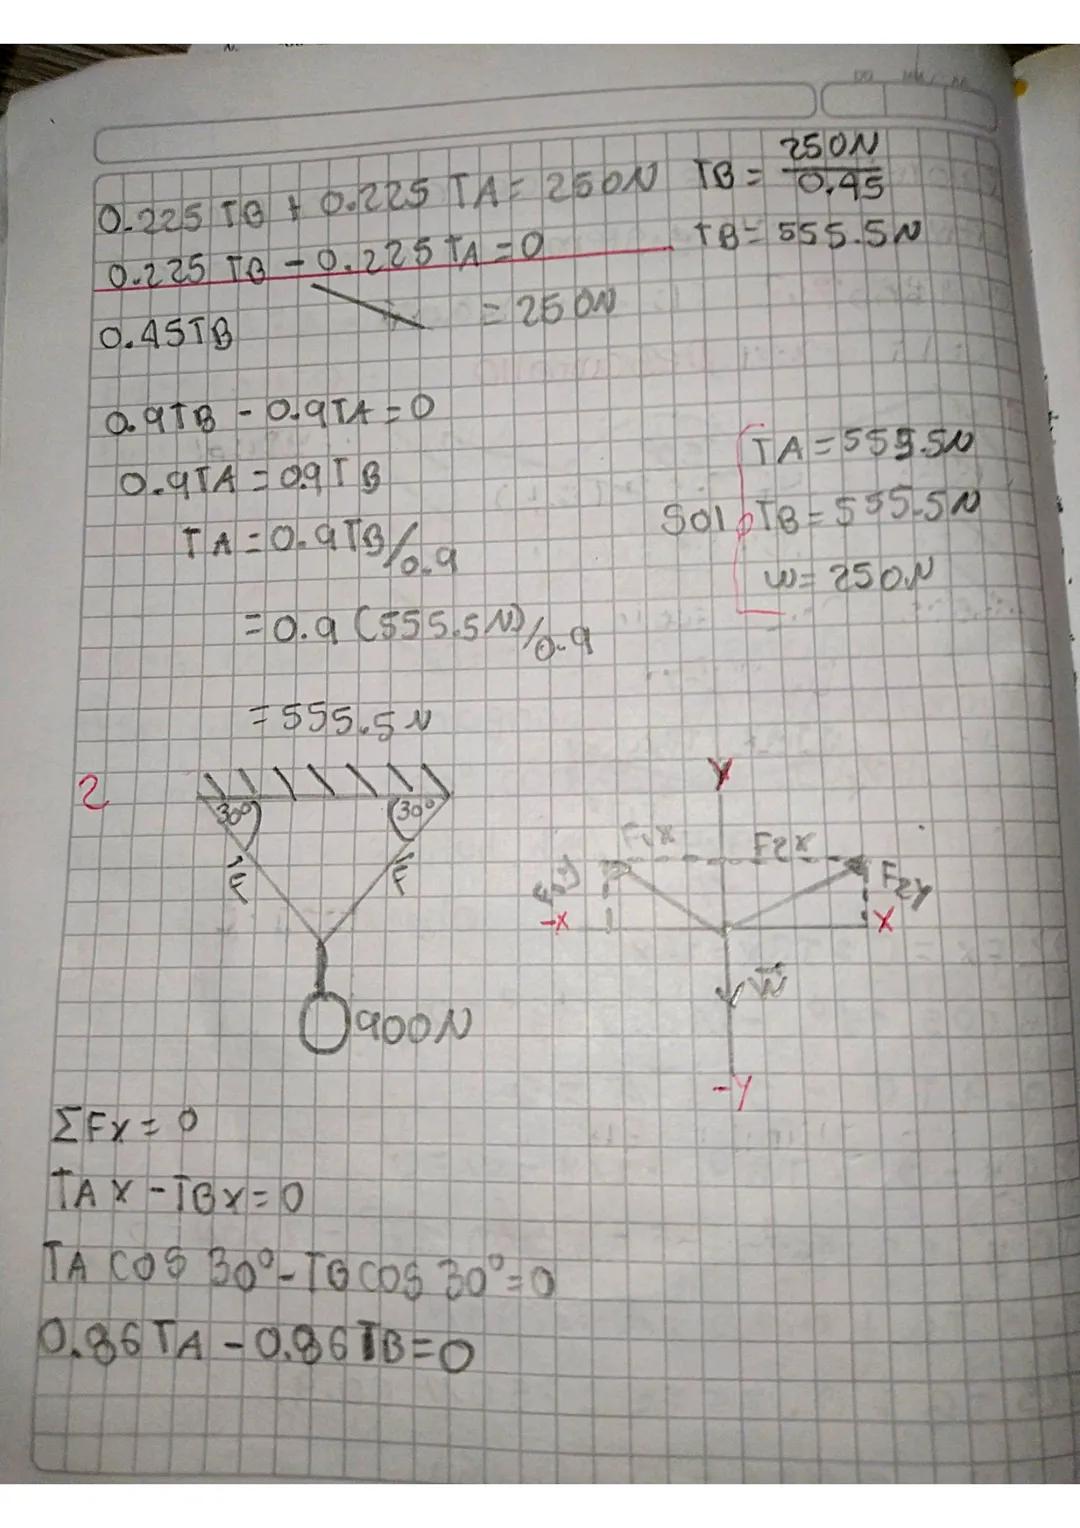 0.225 TB + 0.225 TA = 250N
0.225 TB - 0.225 TA = 0
0.45TB = 250N
TB = 250N / 0.45
TB = 555.5N
0.9TB - 0.9TA = 0
0.9TA = 0.9TB
TA = 0.9TB/0.9
= 0.9 (555.5N)/0.9
= 555.5N
Sol
TA = 555.5N
TB = 555.5N
w = 250N
2
30° 30°
F F
900N
Y
F1x F2x
F2y
-X X
W
-Y
ΣFX = 0
TAX - TBX = 0
TA COS 30° - TB COS 30° = 0
0.86TA - 0.86TB = 0